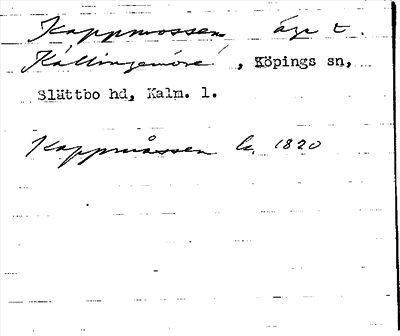 Kappmossen äga t.
Källingemöre, Köpings sn,
Slättbo hd, Kalm. l.
Kappmåssen lc. 1820